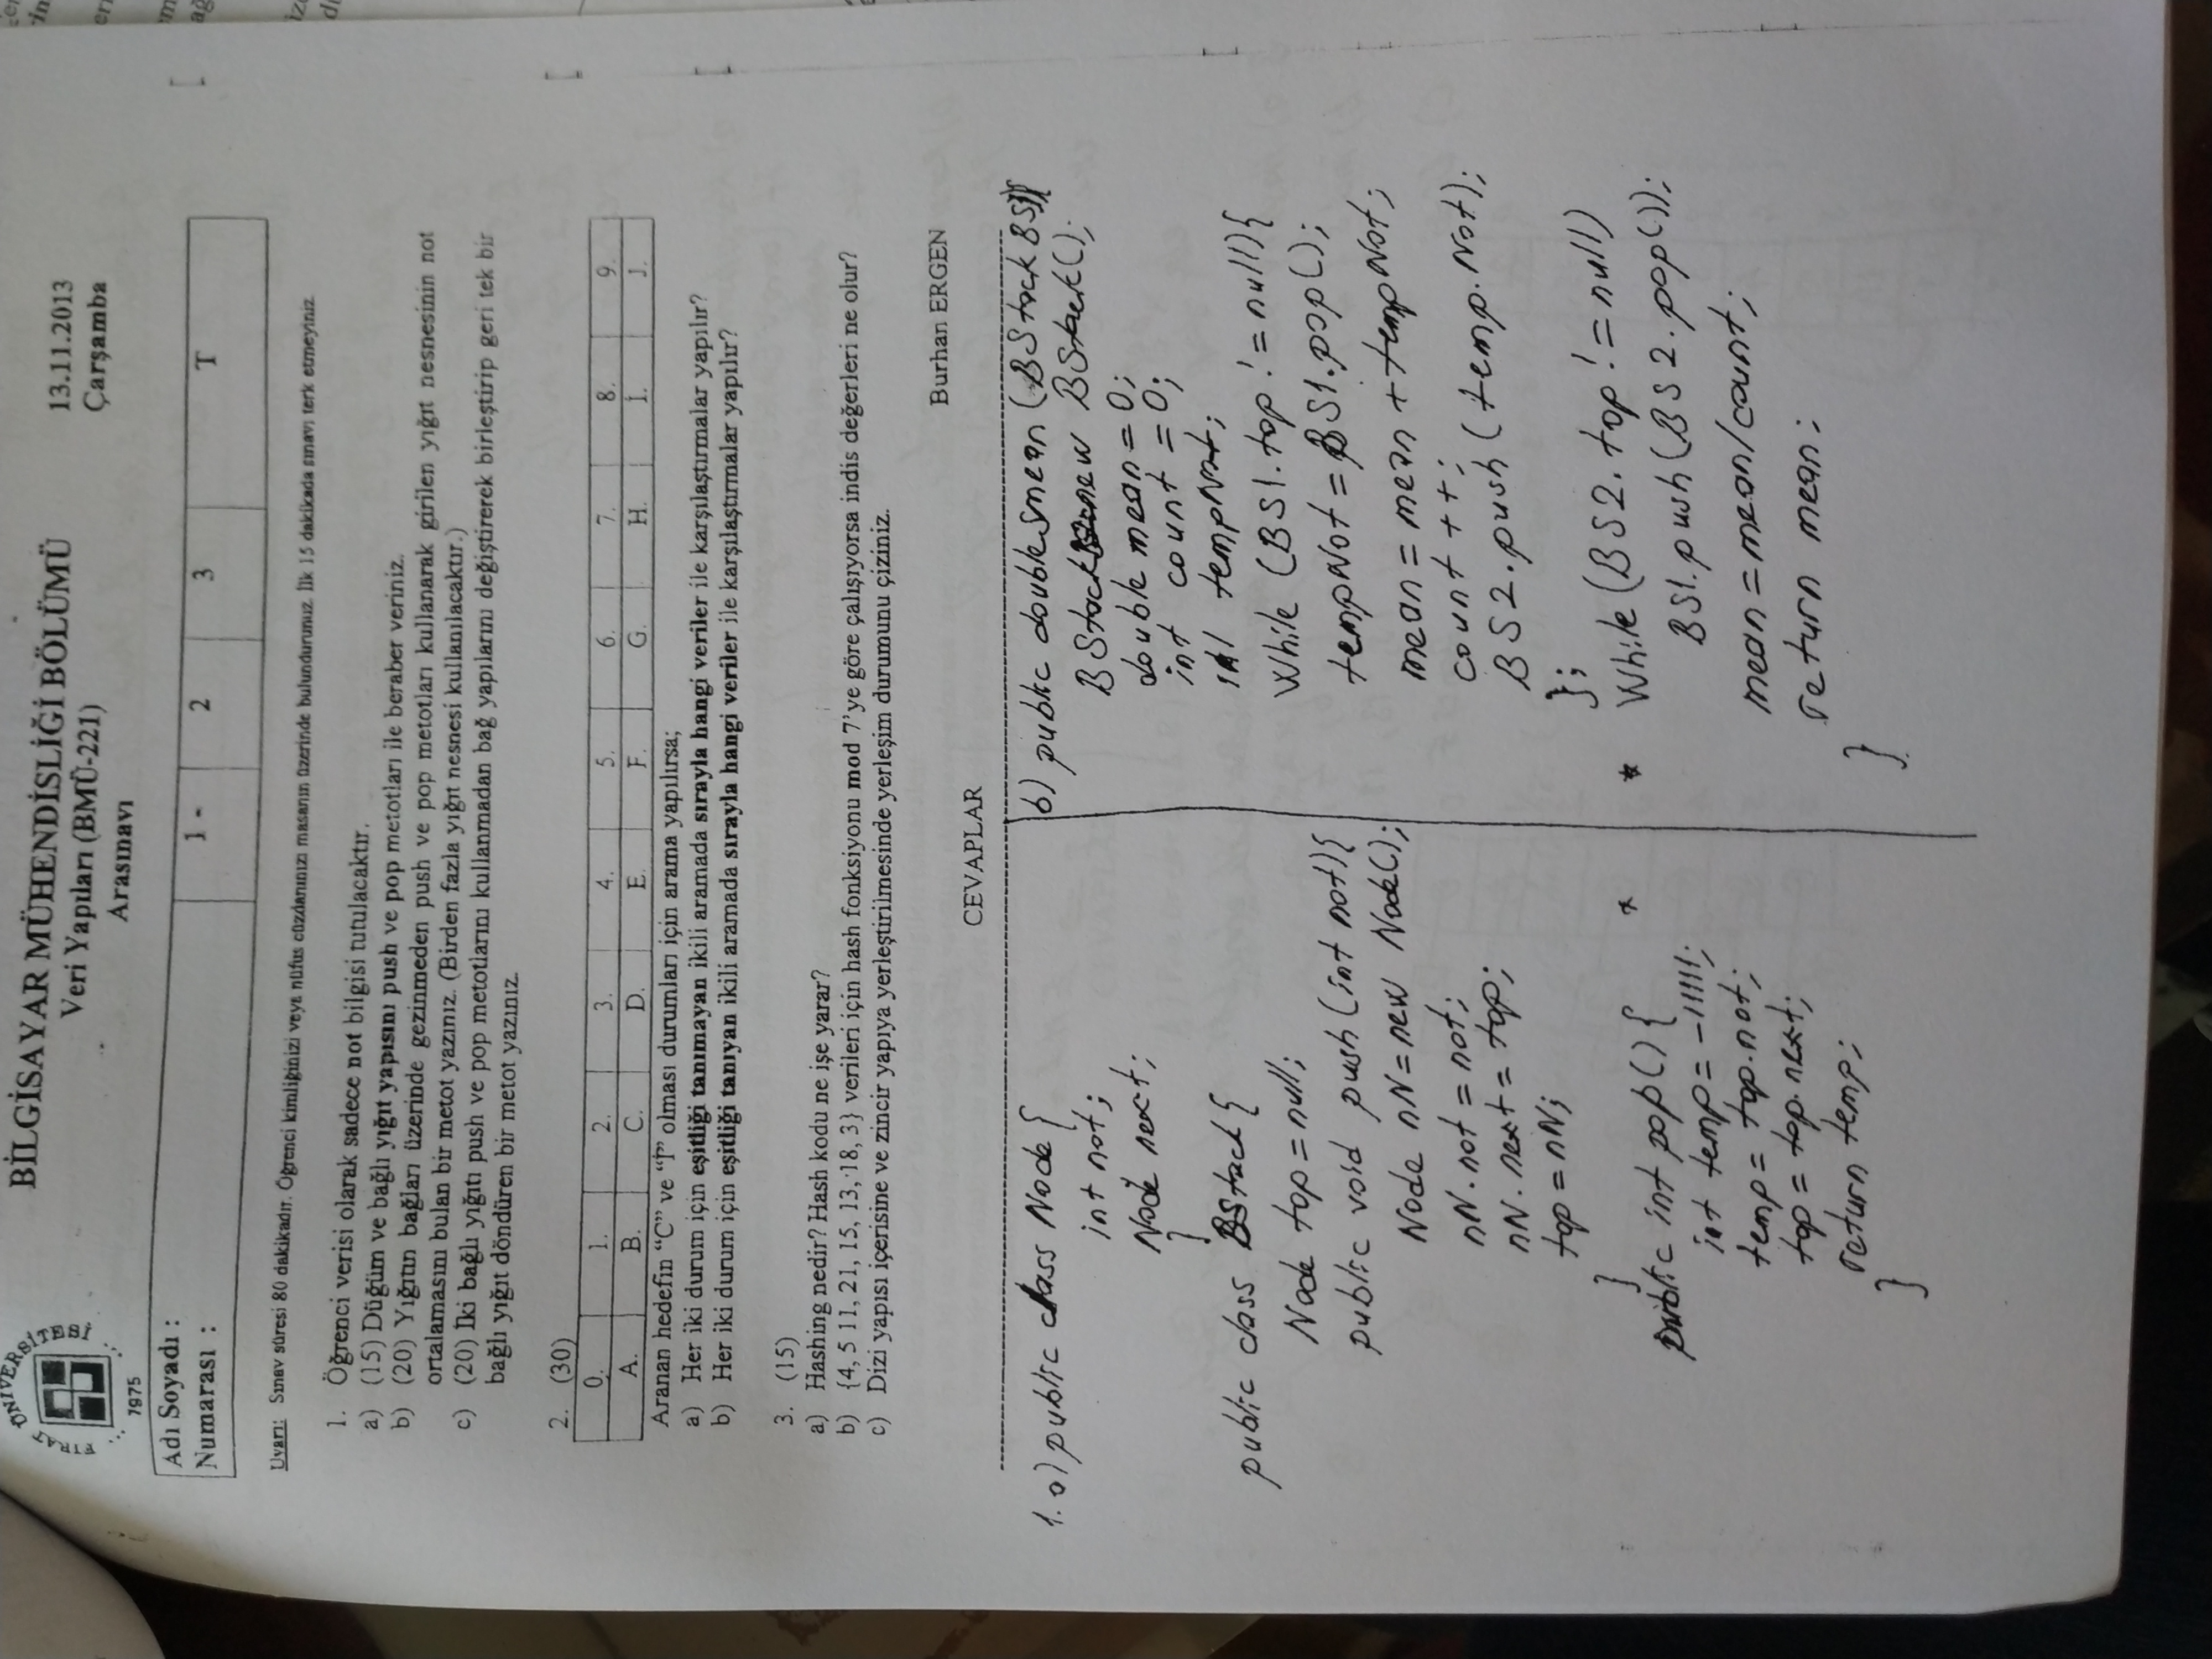 BİLGİSAYAR MÜHENDİSLİĞİ BÖLÜMÜ
Veri Yapıları (BMÜ-221)
Arasınavı
13.11.2013
Çarşamba
1975
Adı Soyadı :
Numarası :
1 -
2
3
T
Uyarı: Sınav süresi 80 dakikadır. Öğrenci kimliğinizi veya nüfus cüzdanınızı masanın üzerinde bulundurunuz. İlk 15 dakikada sınavı terk etmeyiniz
1. Öğrenci verisi olarak sadece not bilgisi tutulacaktır.
a) (15) Düğüm ve bağlı yığıt yapısını push ve pop metotları ile beraber veriniz.
b) (20) Yığıtın bağları üzerinde gezinmeden push ve pop metotları kullanarak girilen yığıt nesnesinin not
ortalamasını bulan bir metot yazınız. (Birden fazla yığıt nesnesi kullanılacaktır.)
c) (20) İki bağlı yığıtı push ve pop metotlarını kullanmadan bağ yapılarını değiştirerek birleştirip geri tek bir
bağlı yığıt döndüren bir metot yazınız.
2. (30)
0. 1. 2. 3. 4. 5. 6. 7. 8. 9.
A. B. C. D. E. F. G. H. İ. J.
Aranan hedefin “C” ve “İ” olması durumları için arama yapılırsa;
a) Her iki durum için eşitliği tanımayan ikili aramada sırayla hangi veriler ile karşılaştırmalar yapılır?
b) Her iki durum için eşitliği tanıyan ikili aramada sırayla hangi veriler ile karşılaştırmalar yapılır?
3. (15)
a) Hashing nedir? Hash kodu ne işe yarar?
b) {4, 5 11, 21, 15, 13, 18, 3} verileri için hash fonksiyonu mod 7’ye göre çalışıyorsa indis değerleri ne olur?
c) Dizi yapısı içerisine ve zincir yapıya yerleştirilmesinde yerleşim durumunu çiziniz.
Burhan ERGEN
CEVAPLAR
1.a) public class Node{
int not;
Node next;
}
public class BStack{
Node top = null;
public void push (int not){
Node nN = new Node();
nN.not = not;
nN.next = top;
top = nN;
}
public int pop() {
int temp = -11111;
temp = top.not;
top = top.next;
return temp;
}
*
b) public double mean (BStack BS1){
BStack new BStack();
double mean = 0;
int count = 0;
int tempNot;
While (BS1.top != null){
tempNot = BS1.pop();
mean = mean + tempNot;
count ++;
BS2.push (temp.Not);
};
* While (BS2.top != null)
BS1.push (BS2.pop());
mean = mean/count;
return mean;
}